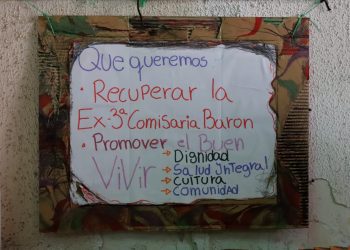 Que queremos
• Recuperar la
Ex.-3ª Comisaria Baron
• Promover el Buen
ViVir → Dignidad
→ Salud Integral
→ Cultura
→ Comunidad